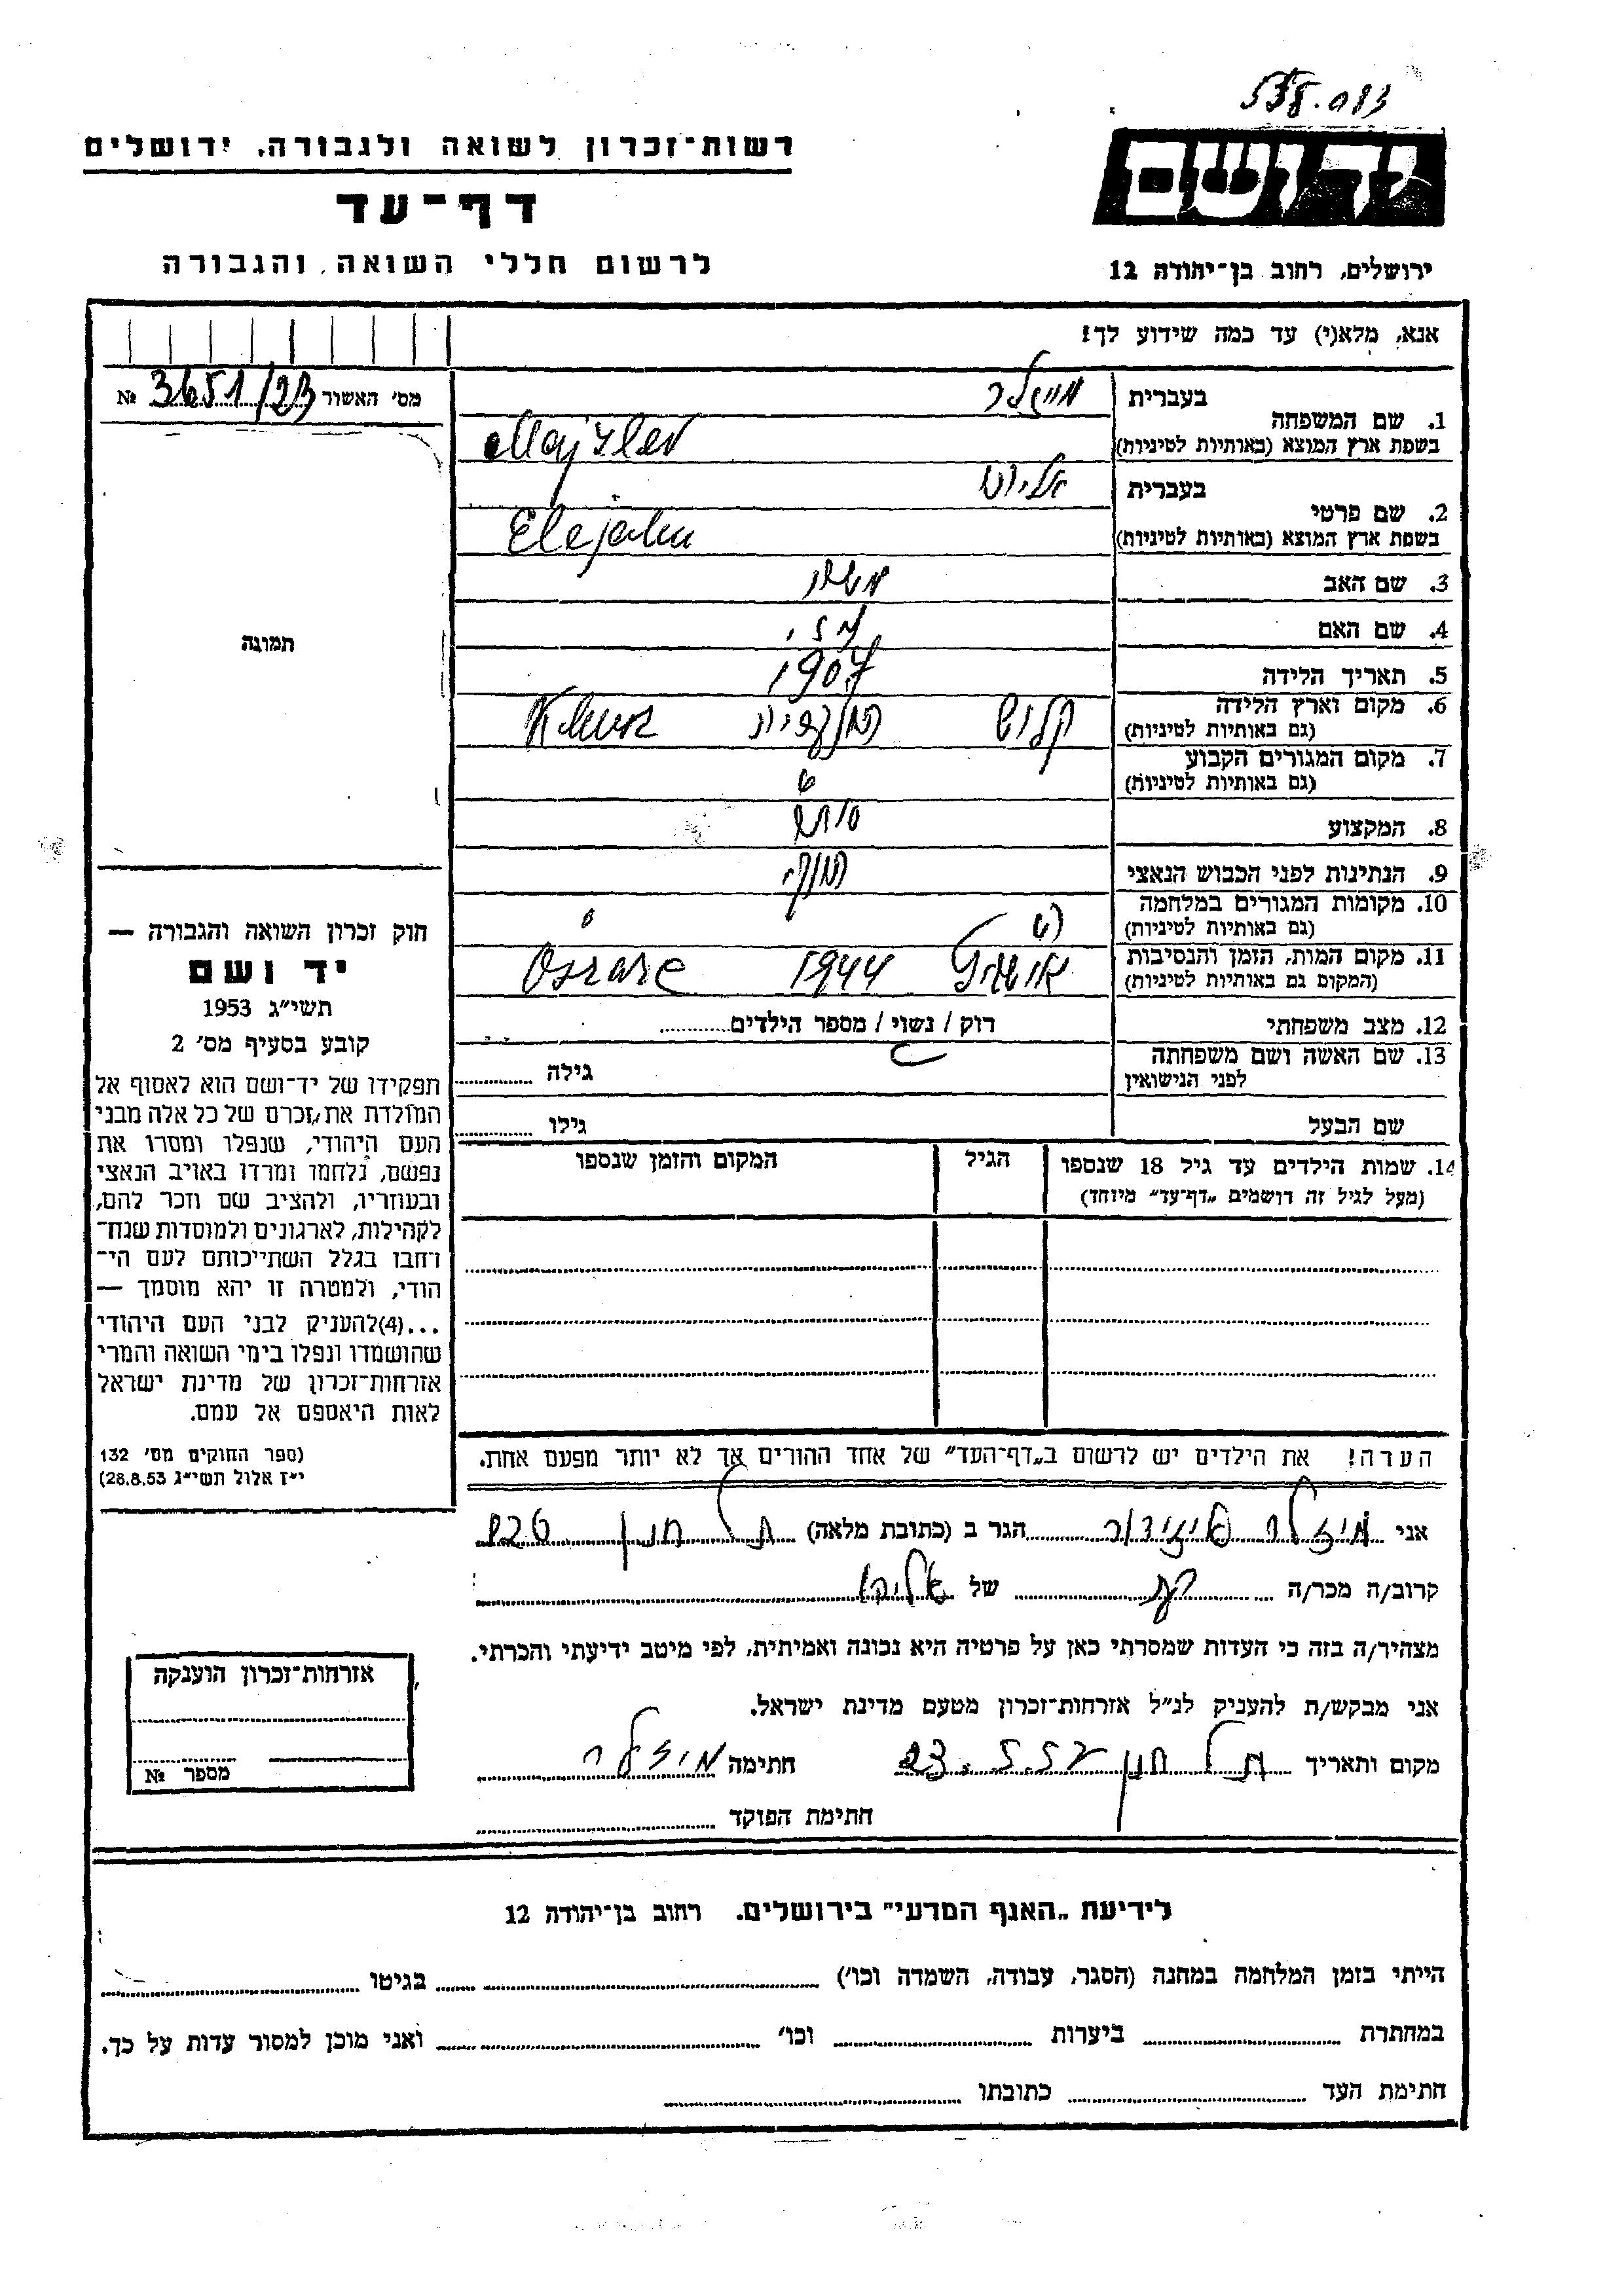 538.083
רשות־זכרון לשואה ולגבורה, ירושלים
דף־עד
לרשום חללי השואה והגבורה
יד ושם
ירושלים, רחוב בן־יהודה 12
אנא, מלא(י) עד כמה שידוע לך!
מס' האשור 3651/23 №
תמונה
1. שם המשפחה
בעברית מייזלר
בשפת ארץ המוצא (באותיות לטיניות) Majzler
2. שם פרטי
בעברית
בשפת ארץ המוצא (באותיות לטיניות) Elejahu
3. שם האב משה
4. שם האם
5. תאריך הלידה 1907
6. מקום וארץ הלידה
(גם באותיות לטיניות) קלוש
7. מקום המגורים הקבוע
(גם באותיות לטיניות)
8. המקצוע סוחר
9. הנתינות לפני הכבוש הנאצי
10. מקומות המגורים במלחמה
(גם באותיות לטיניות)
11. מקום המות, הזמן והנסיבות
(המקום גם באותיות לטיניות) 1944
12. מצב משפחתי רוק / נשוי / מספר הילדים
13. שם האשה ושם משפחתה
לפני הנישואין גילה
שם הבעל גילו
14. שמות הילדים עד גיל 18 שנספו הגיל המקום והזמן שנספו
(מעל לגיל זה רושמים „דף־עד" מיוחד)
חוק זכרון השואה והגבורה —
יד ושם
תשי"ג 1953
קובע בסעיף מס' 2
תפקידו של יד־ושם הוא לאסוף אל
המולדת את זכרם של כל אלה מבני
העם היהודי, שנפלו ומסרו את
נפשם, נלחמו ומרדו באויב הנאצי
ובעוזריו, ולהציב שם וזכר להם,
לקהילות, לארגונים ולמוסדות שנח־
רחבו בגלל השתייכותם לעם הי־
הודי, ולמטרה זו יהא מוסמך —
...(4)להעניק לבני העם היהודי
שהושמדו ונפלו בימי השואה והמרי
אזרחות־זכרון של מדינת ישראל
לאות היאספם אל עמם.
(ספר החוקים מס' 132
י"ז אלול תשי"ג 28.8.53)
הערה! את הילדים יש לרשום ב„דף־העד" של אחד ההורים אך לא יותר מפעם אחת.
אני מיזלר איזידור הגר ב (כתובת מלאה) תל חנן
קרוב/ה מכר/ה של
מצהיר/ה בזה כי העדות שמסרתי כאן על פרטיה היא נכונה ואמיתית, לפי מיטב ידיעתי והכרתי.
אני מבקש/ת להעניק לנ"ל אזרחות־זכרון מטעם מדינת ישראל.
מקום ותאריך תל חנן חתימה מיזלר
חתימת הפוקד
אזרחות־זכרון הוענקה
מספר №
לידיעת „האגף המדעי" בירושלים. רחוב בן־יהודה 12
הייתי בזמן המלחמה במחנה (הסגר, עבודה, השמדה וכו') בגיטו
במחתרת ביערות וכו' ואני מוכן למסור עדות על כך.
חתימת העד כתובתו